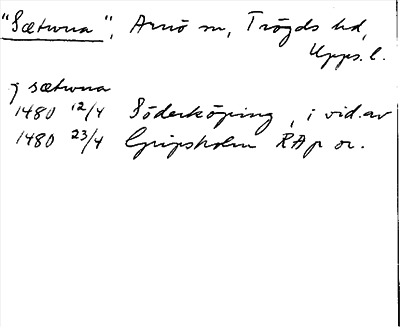 "Sætwna", Arnö sn, Trögds hd,
Upps. l.
j sætwna
1480 12/4 Söderköping, i vid. av
1480 23/4 Gripsholm RAp or.